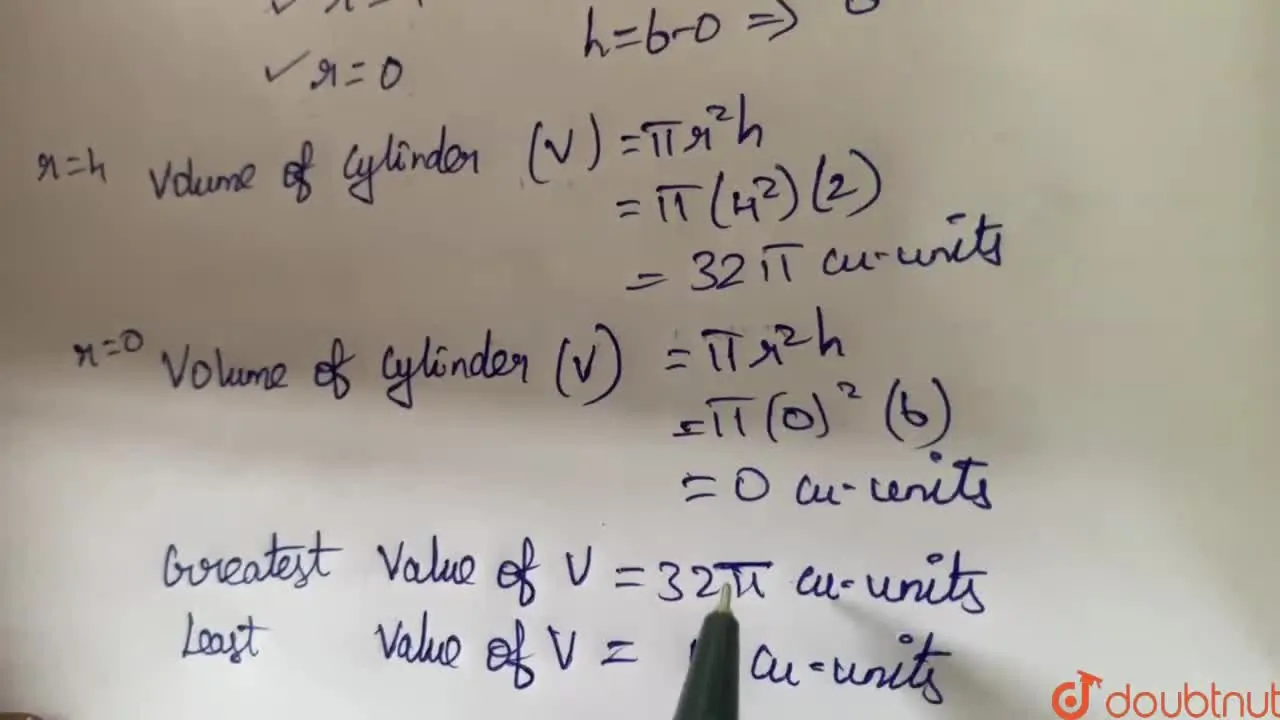 h=6-0 ⇒
✓ r=0
r=4 Volume of Cylinder (V) = πr²h
= π(4²)(2)
= 32π cu-units
r=0 Volume of Cylinder (V) = πr²h
= π(0)² (6)
= 0 cu-units
Greatest Value of V = 32π cu-units
Least Value of V = cu-units
doubtnut